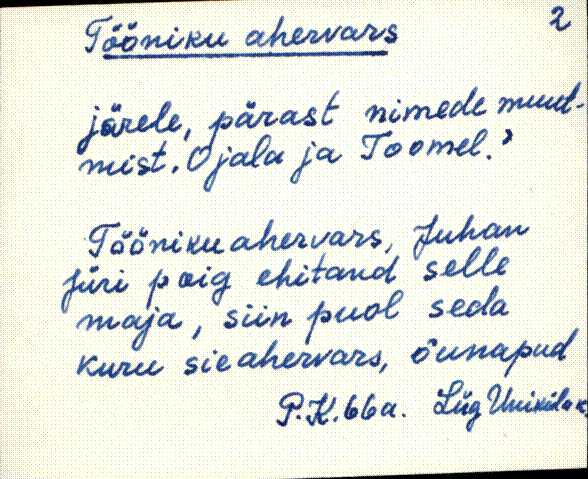 2
Tööniku ahervars
järele, pärast nimede muut-
mist. Ojala ja Toomel.
Tööniku ahervars, Juhan
Jüri poig ehitand selle
maja, siin puol seda
kuru sie ahervars, õunapud
P.K. 66a. Liig Unikülak.